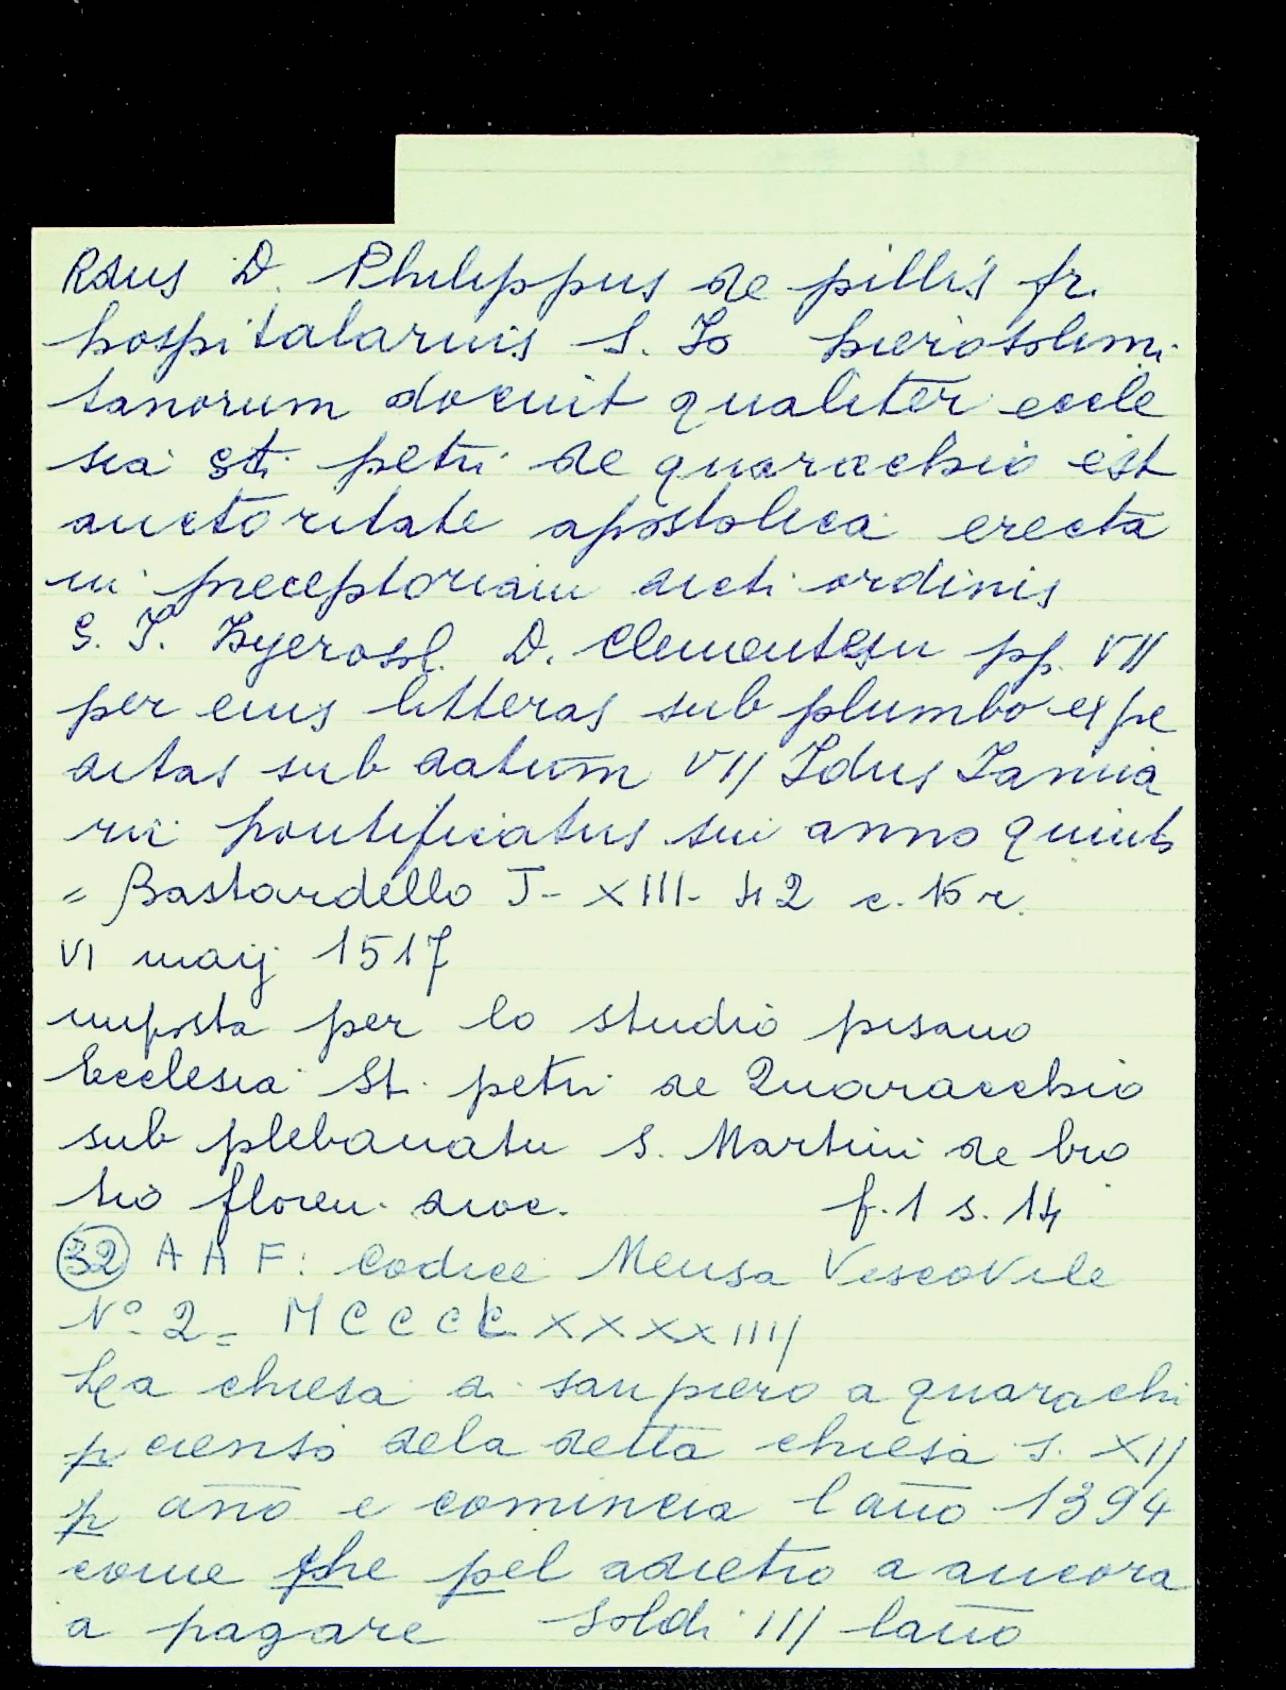 Rdus D. Philippus de pillis fr.
hospitalarius S. Jo hierosolimi
tanorum docuit qualiter eccle
sia sti petri de quaracchio est
auctoritate apostolica erecta
in preceptoriam dicti ordinis
S. J. Hyerosol. D. Clementem pp. VII
per eius litteras sub plumbo expe
ditas sub datum VII Idus Janua
rii pontificatus sui anno quinto
= Bastardello J-XIII-42 c. 16 r.
VI maij 1517
imposta per lo studio pisano
Ecclesia St. petri de Quaracchio
sub plebanatu S. Martini de bro
tio floren. dioc. f. 1 s. 14
(32) A A F: Codice Mensa Vescovile
N° 2 = MCCCLXXXXIIII
La chiesa di san piero a quarachi
p cienso dela detta chiesa s. XII
p año e comincia l año 1394
come phe pel adietro a ancora
a pagare soldi III lano